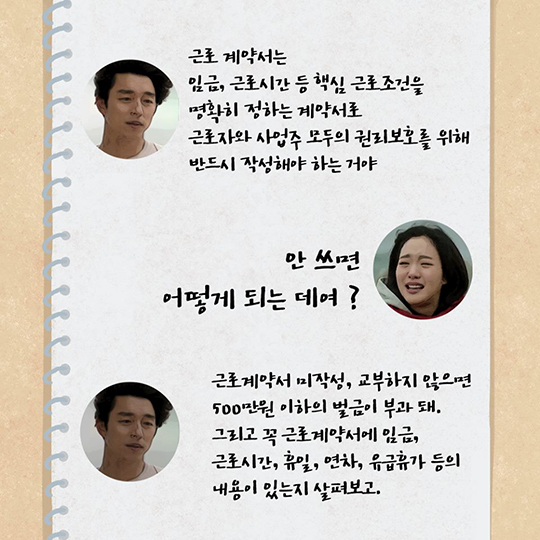 근로 계약서는
임금, 근로시간 등 핵심 근로조건을
명확히 정하는 계약서로
근로자와 사업주 모두의 권리보호를 위해
반드시 작성해야 하는 거야
안 쓰면
어떻게 되는 데여 ?
근로계약서 미작성, 교부하지 않으면
500만원 이하의 벌금이 부과 돼.
그리고 꼭 근로계약서에 임금,
근로시간, 휴일, 연차, 유급휴가 등의
내용이 있는지 살펴보고.